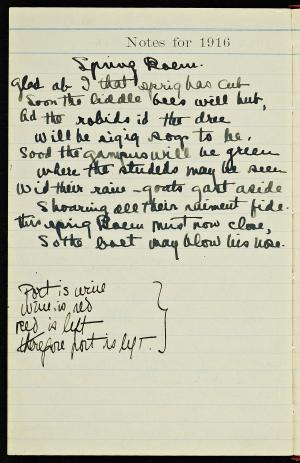 Notes for 1916
Spring Poem.
Glad ab I that sprig has cub
Soon the liddle bees will hub,
Ad the robids id the dree
Will be sigig sogs to be.
Sood the gampus will be green
Where the studeds may be seen
Wid their raine-goats gast aside
Showing all their raiment fide.
this spring Poem must now close,
So the boet may blow his nose.
Port is wine
Wine is red
red is left
therefore port is left.